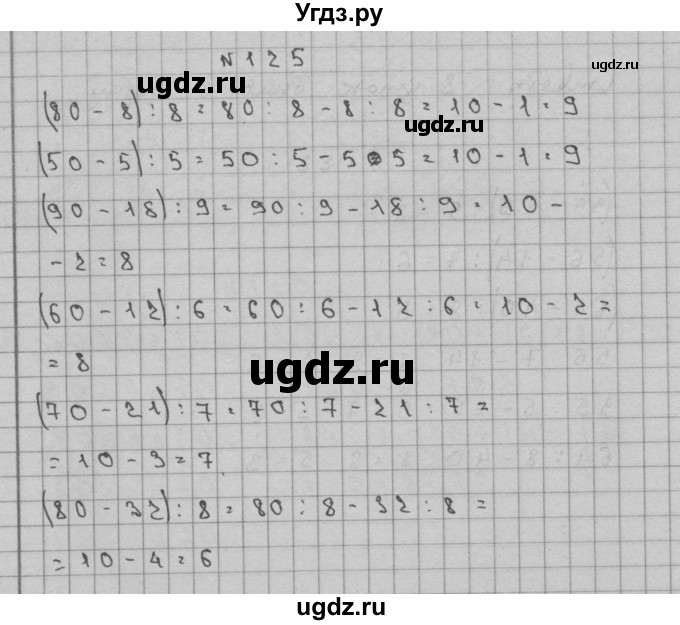 Угдз.ру
№125
ugdz.ru
ugdz.ru
(80-8):8=80:8-8:8=10-1=9
ugdz.ru
(50-5):5=50:5-5:5=10-1=9
(90-18):9=90:9-18:9=10-
-2=8
(60-12):6=60:6-12:6=10-2=
=8
ugdz.ru
(70-21):7=70:7-21:7=
=10-3=7
(80-32):8=80:8-32:8=
=10-4=6
ugdz.ru
ugdz.ru